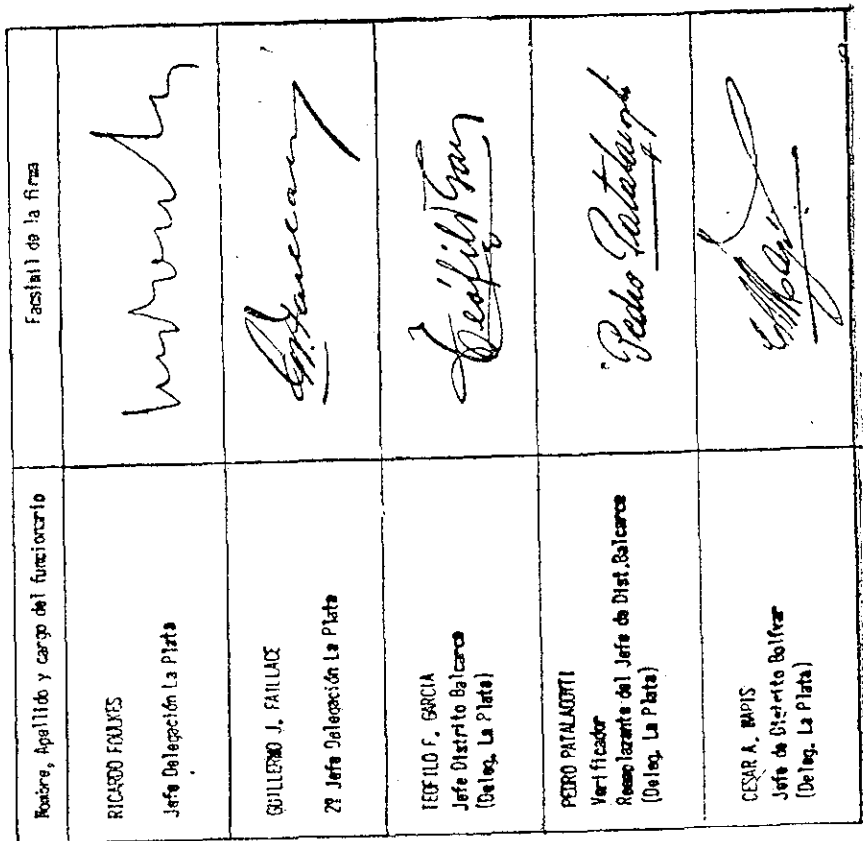 Nombre, Apellido y cargo del funcionario
Facsimil de la firma
RICARDO
Jefe Delegación La Plata
GUILLERMO J. FAILLACE
2º Jefe Delegación La Plata
TEOFILO F. GARCIA
Jefe Distrito Balcarce
(Deleg. La Plata)
Teófilo
PEDRO
Verificador
Reemplazante del Jefe de Dist.Balcarce
(Deleg. La Plata)
Pedro
CESAR A. MAPIS
Jefe de Distrito Bolívar
(Deleg. La Plata)